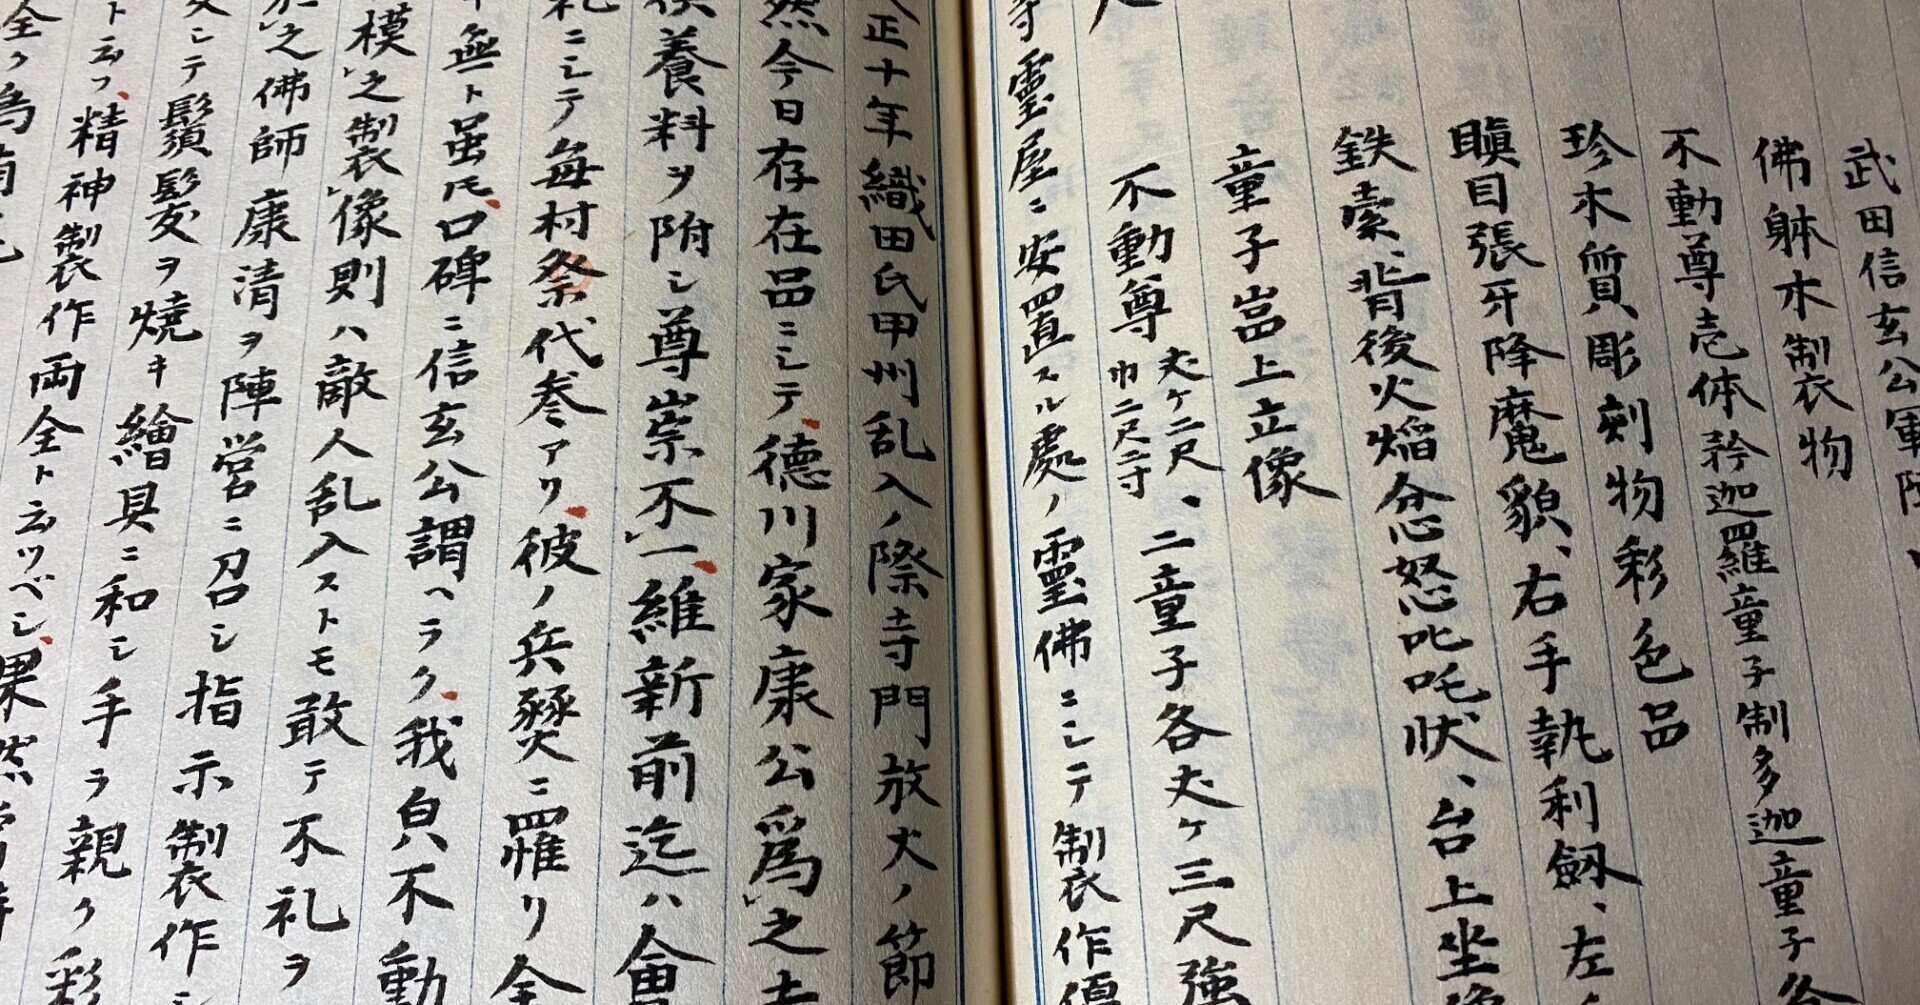 武田信玄公軍陣
佛躰木製物
不動尊壱体矜迦羅童子制多迦童子各
珍木質彫刻物彩色品
瞋目張牙降魔貌、右手執利劔、左
鉄索、背後火焔忿怒叱吒状、台上坐像
童子嵓上立像
不動尊丈ケ二尺巾二尺二寸、二童子各丈ケ三尺強
寺靈屋ニ安置スル處ノ靈佛ニシテ製作優
正十年織田氏甲州乱入ノ際寺門放火ノ節
然今日存在品ニシテ、德川家康公爲之
供養料ヲ附シ尊崇不一、維新前迄ハ會
礼ニシテ毎村祭代参アリ、彼ノ兵燹ニ罹リ全
無ト虽モ、口碑ニ信玄公謂ヘラク、我皃不動
模之製像則ハ敵人乱入ストモ敢テ不礼ヲ
之佛師康清ヲ陣営ニ召シ指示製作シ
シテ鬚髮ヲ焼キ繪具ニ和シ手ラ親ク彩
ト云フ、精神製作両全ト云ツベシ、果然
全ク為